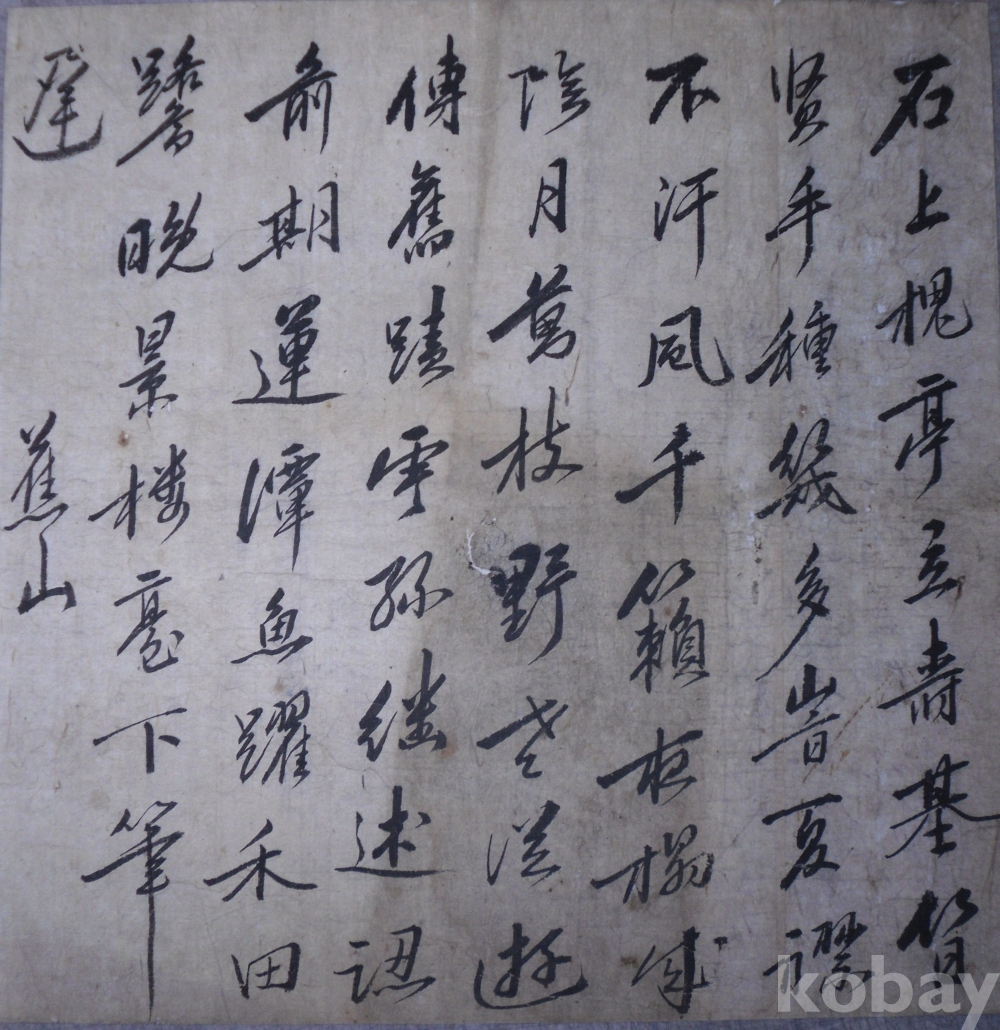 石上槐亭立壽基昔
贤手種幾多旹夏襟
不汗風千籟夜榻成
陰月萬枝野老從遊
傳舊蹟雲孫继述認
前期蓮潭魚躍禾田
鷺晩景楼毫下筆
遲 蕉山
kobay